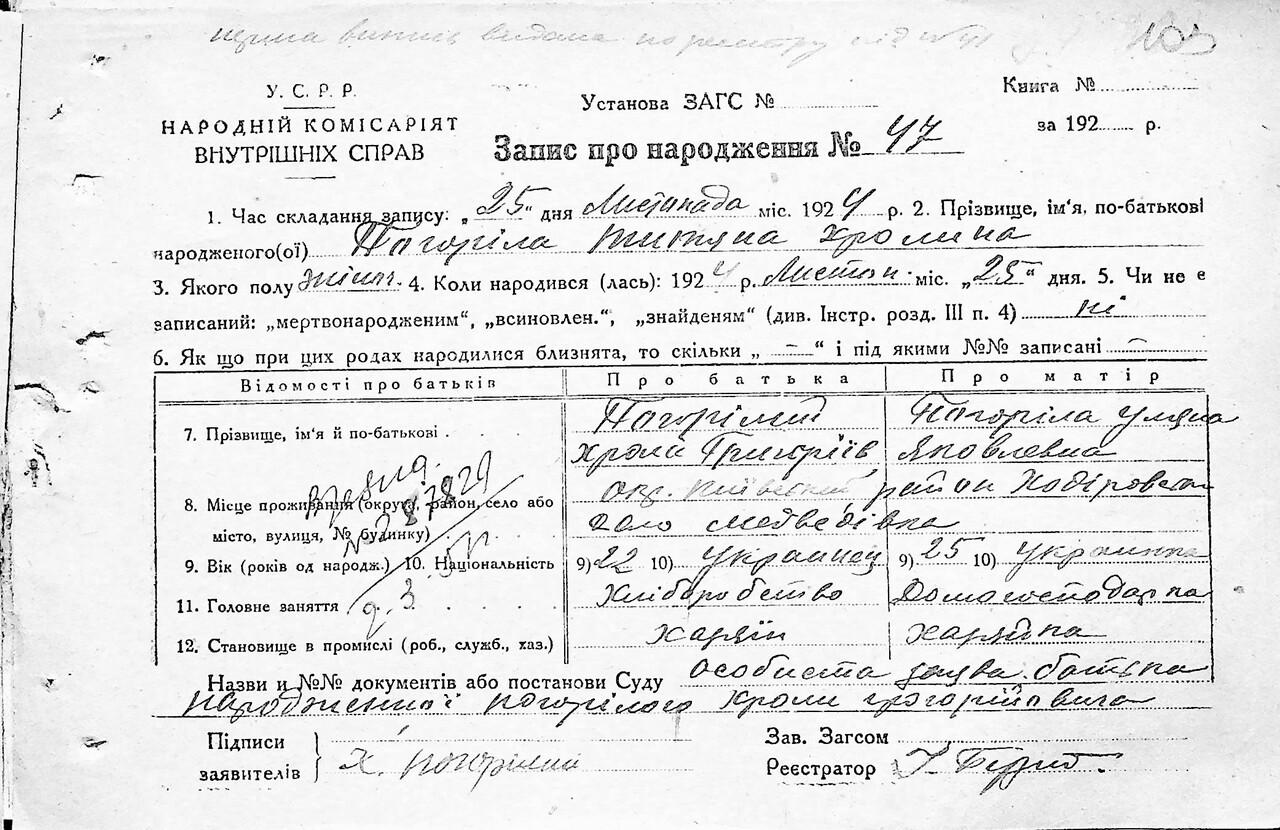 У. С. Р. Р.
НАРОДНІЙ КОМІСАРІЯТ
ВНУТРІШНІХ СПРАВ
Установа ЗАГС №
Книга №
за 192 р.
Запис про народження № 47
1. Час складання запису: „25“ дня Листопада міс. 1924 р. 2. Прізвище, ім'я, по-батькові
народженого(ої) Погоріла Титяна Хромина
3. Якого полу жіноч. 4. Коли народився (лась): 1924 р. Листоп. міс. „25“ дня. 5. Чи не є
записаний: „мертвонародженим“, „всиновлен.“, „знайденям“ (див. Інстр. розд. III п. 4) ні
6. Як що при цих родах народилися близнята, то скільки „ — “ і під якими №№ записані —
Відомості про батьків Про батька Про матір
7. Прізвище, ім'я й по-батькові Погорілий Погоріла Уляна
Хрома Григоріїв Яковлевна
8. Місце проживання (округа, район, село або окр. Київський район Ходоровск
місто, вулиця, № будинку) село Медведівка
9. Вік (років од народж.) 10. Національність 9) 22 10) Украинец 9) 25 10) Украинка
11. Головне заняття Хліборобство Домогосподарка
12. Становище в промислі (роб., служб., хаз.) Хазяїн Хазяйка
Назви и №№ документів або постанови Суду Особиста заява батька
народженної Погорілого Хроми Григорійовича
Підписи
заявителів Х. Погорілий
Зав. Загсом
Реєстратор